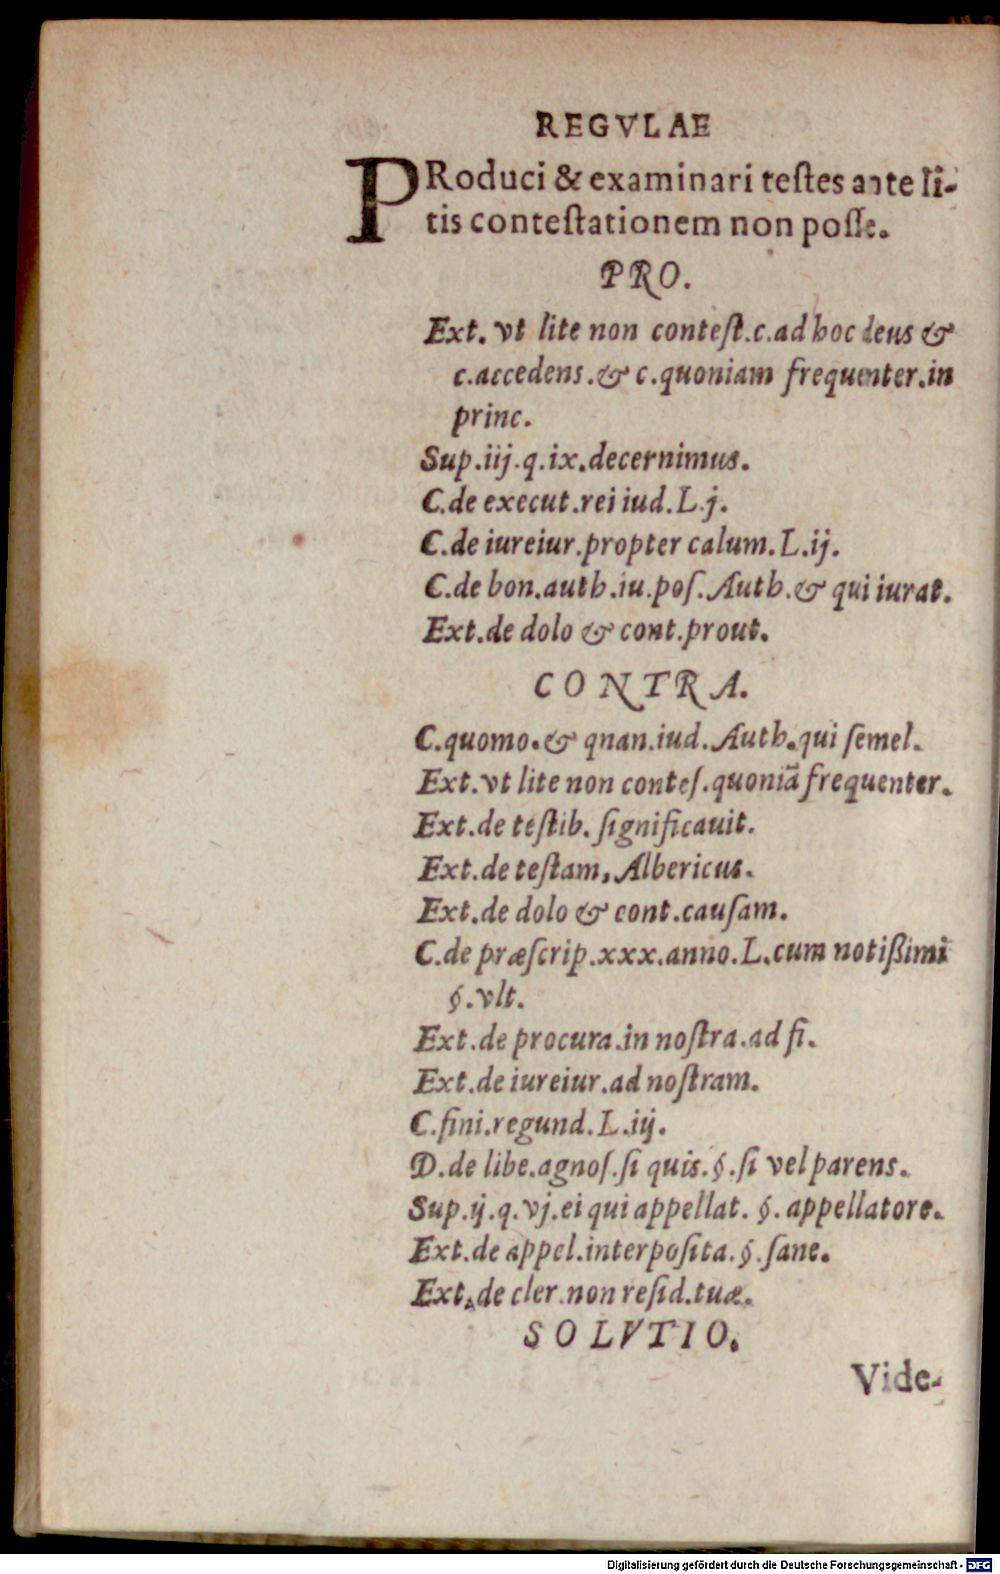 REGVLAE
PRoduci & examinari teſtes ante li-
tis conteſtationem non poſſe.
PRO.
Ext. vt lite non conteſt.c.ad hoc deus &
c.accedens.& c.quoniam frequenter.in
princ.
Sup.iij.q.ix.decernimus.
C.de execut.rei iud.L.j.
C.de iureiur.propter calum.L.ij.
C.de bon.auth.iu.poſ.Auth.& qui iurat.
Ext.de dolo & cont.prout.
CONTRA.
C.quomo.& qnan.iud.Auth.qui ſemel.
Ext.vt lite non conteſ.quoniā frequenter.
Ext.de teſtib. ſignificauit.
Ext.de teſtam, Albericus.
Ext.de dolo & cont.cauſam.
C.de præſcrip.xxx.anno.L.cum notißimi
§.vlt.
Ext.de procura.in noſtra.ad fi.
Ext.de iureiur.ad noſtram.
C.fini.regund.L.iij.
D.de libe.agnoſ.ſi quis.§.ſi vel parens.
Sup.ij.q.vj.ei qui appellat. §. appellatore.
Ext.de appel.interpoſita.§.ſane.
Ext.de cler.non reſid.tuæ.
SOLVTIO.
Vide-
Digitalisierung gefördert durch die Deutsche Forschungsgemeinschaft - DFG